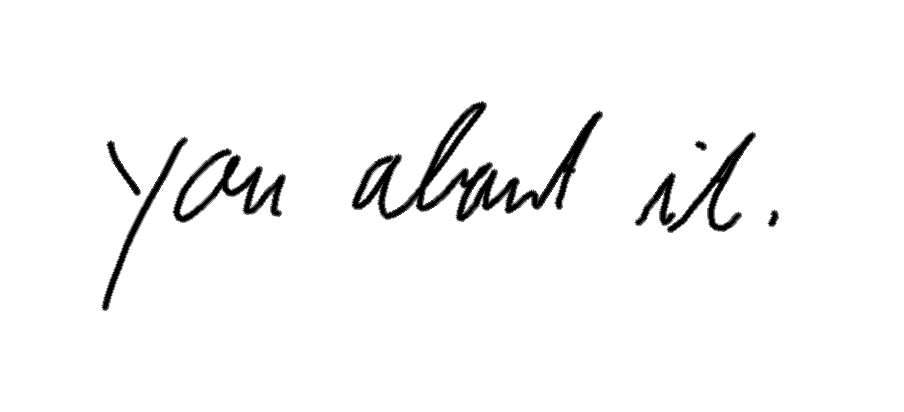 you about it.